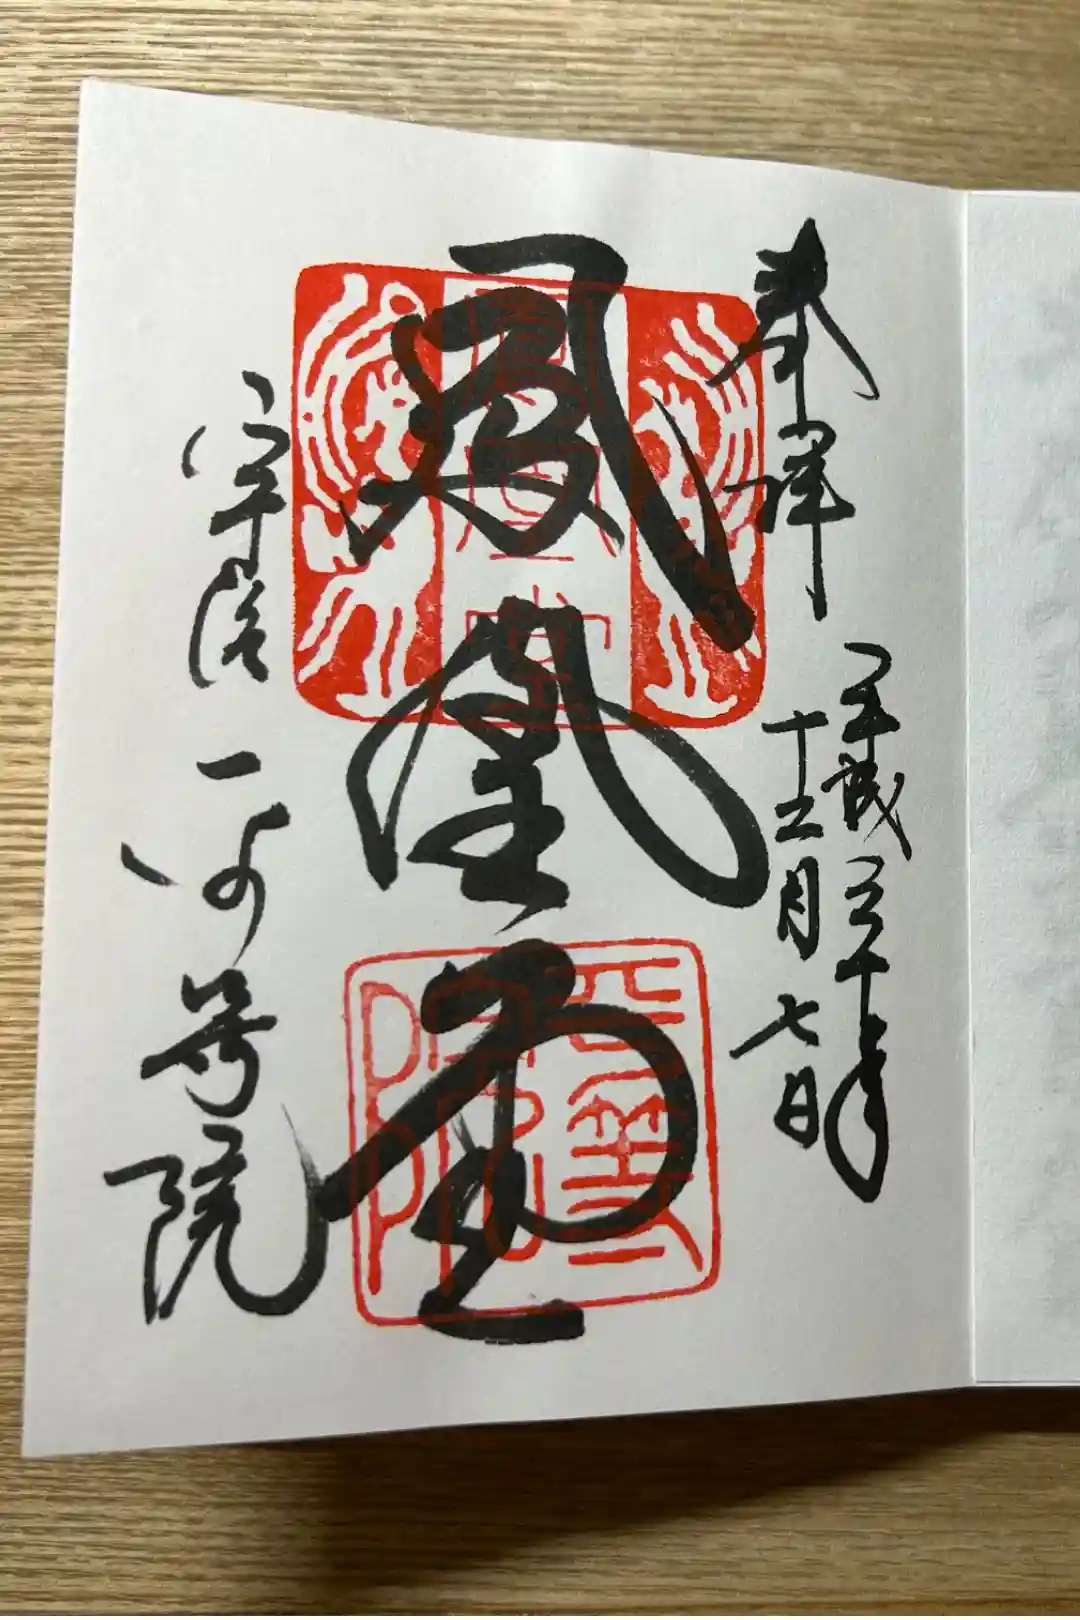 奉拝
平成三十年
十二月七日
鳳凰堂
宇治 平等院